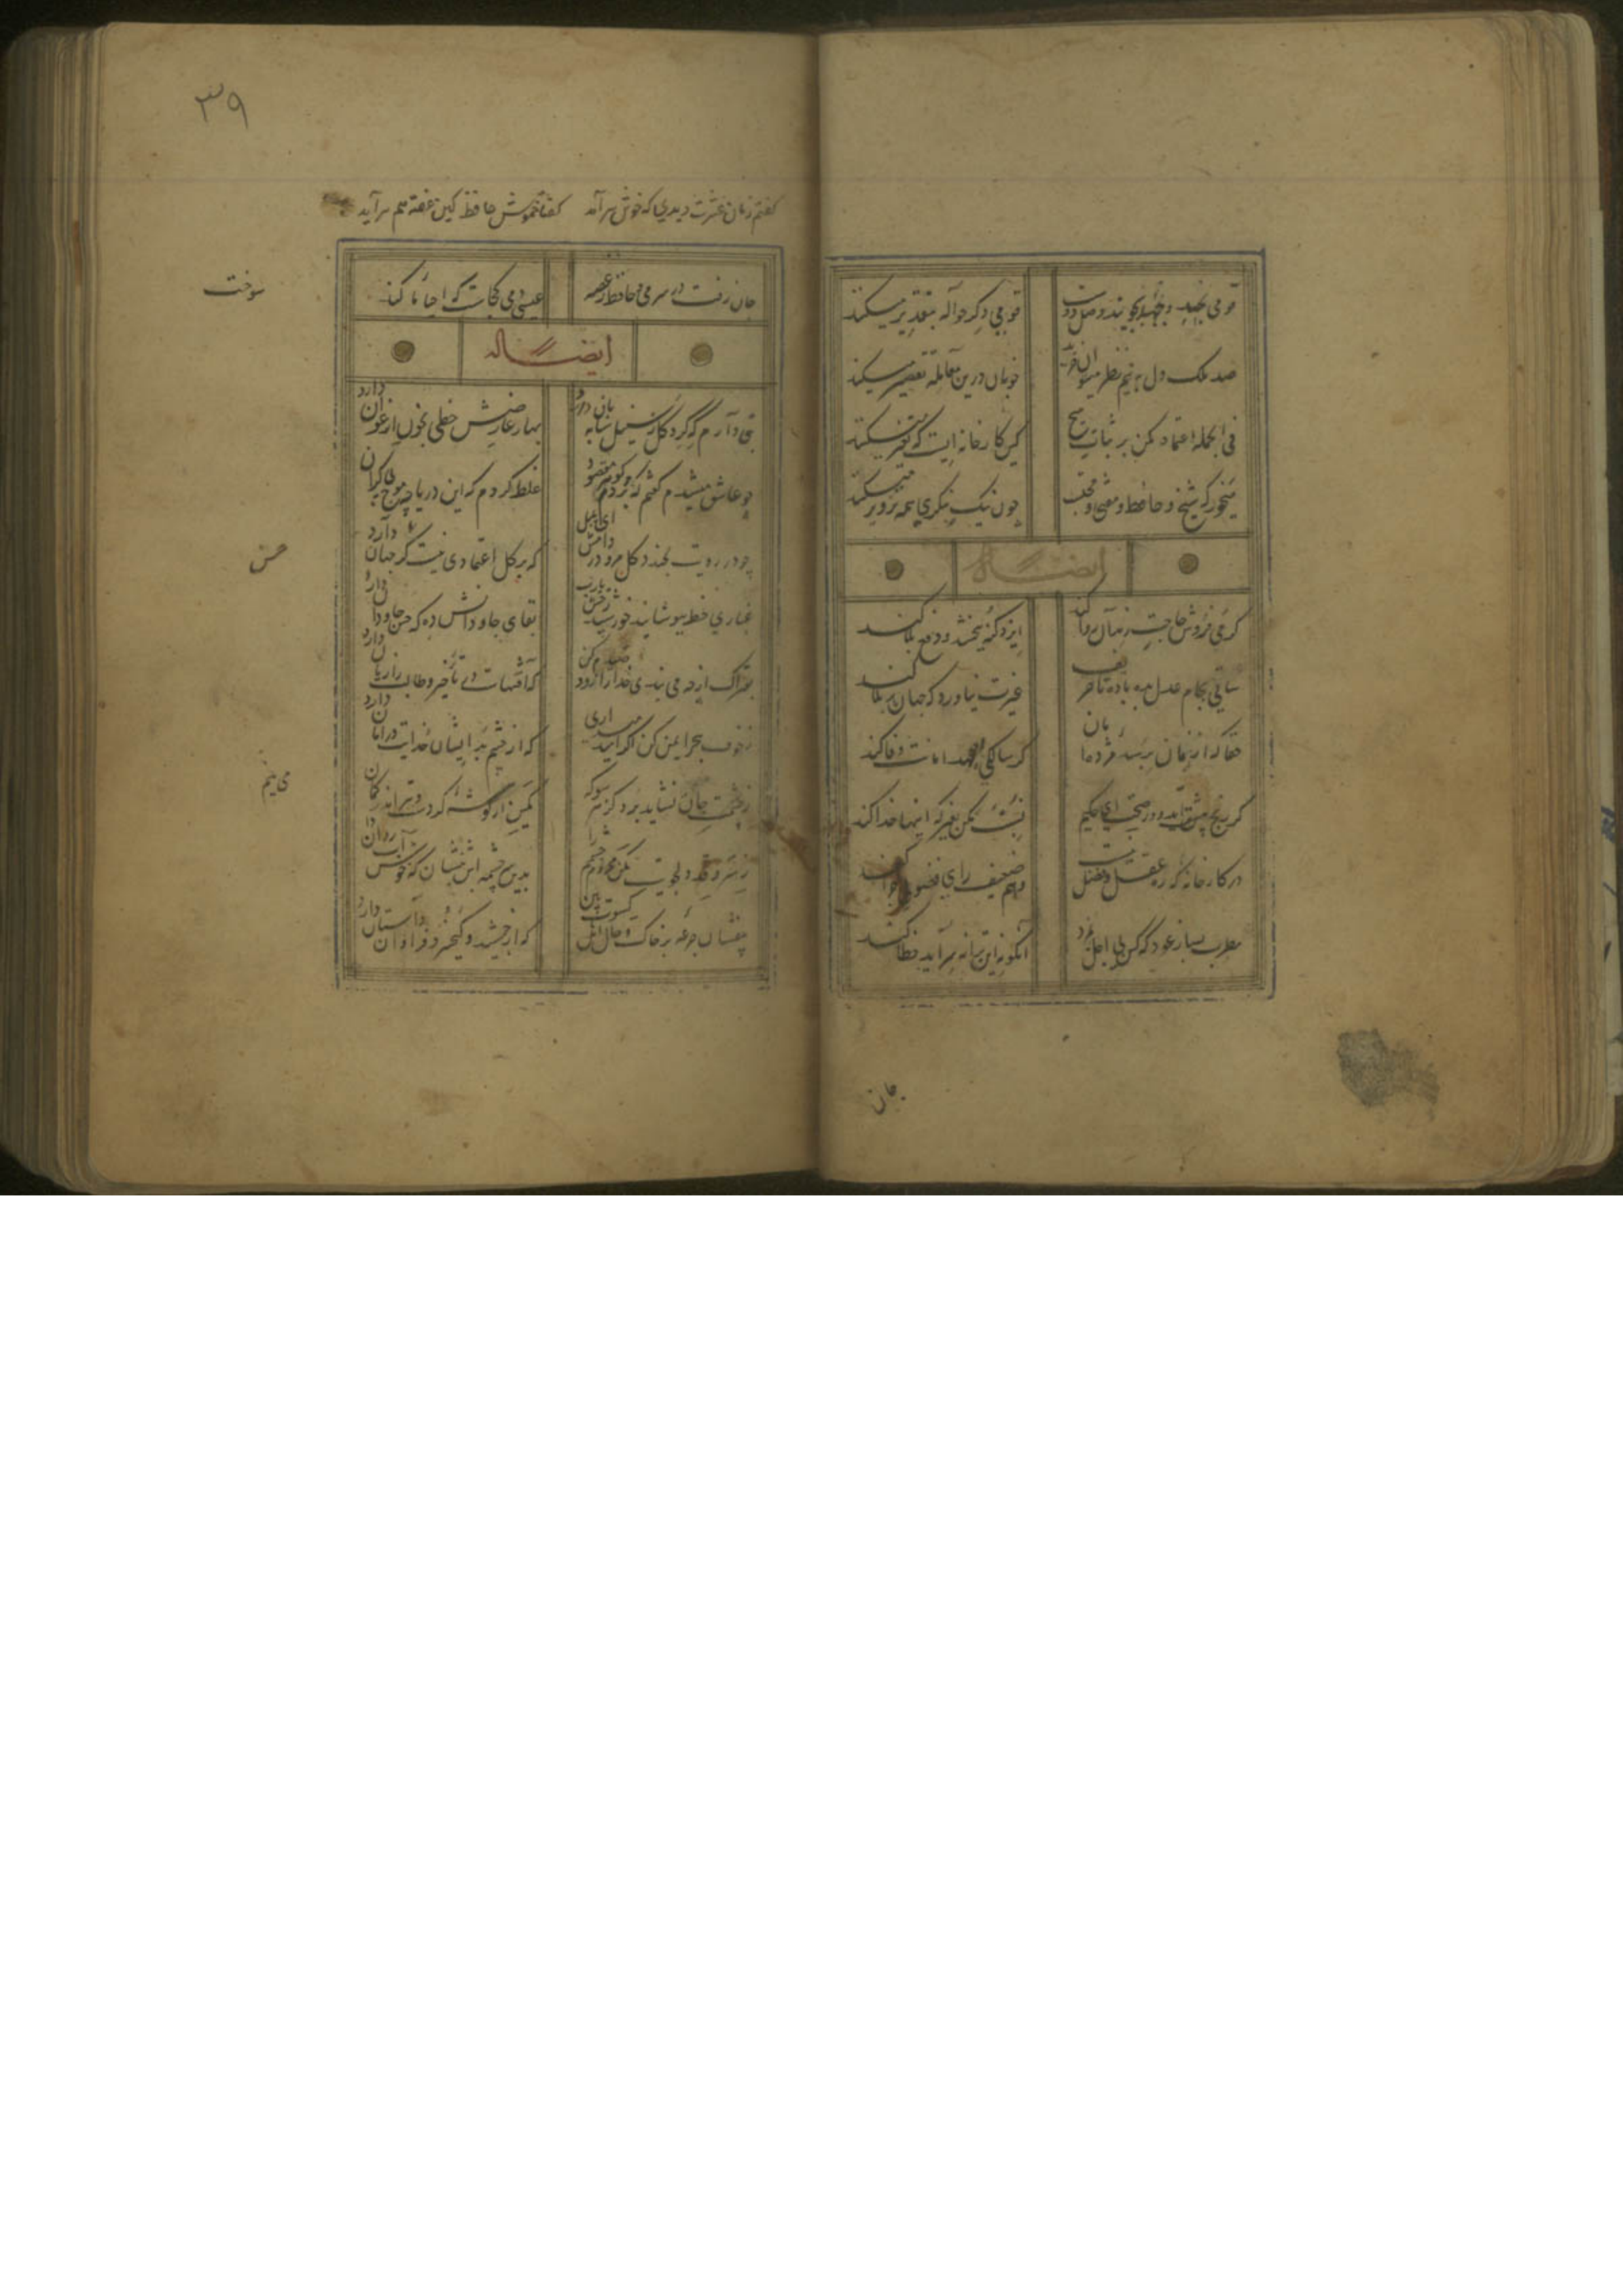 قومی بجد و جهد بجویند وصل دوست
قومی دگر حواله بتقدیر میکنند
صد ملک دل به نیم نظر میتوان خرید
خوبان درین معامله تقصیر میکنند
فی الجمله اعتماد مکن بر ثبات
کین کارخانه ایست که تغییر میکنند
میخور که شیخ و حافظ و مفتی و محتسب
چون نیک بنگری همه تزویر میکنند
ایضا له
گر می فروش حاجت رندان روا کند
ایزد گنه ببخشد و دفع بلا کند
ساقی بجام عدل بده باده تا
غیرت نیاورد که جهان پر بلا کند
حقا کزین غمان برسد مژده امان
گر سالکی بعهد امانت وفا کند
گر رنج پیشت آید و گر راحت ای حکیم
نسبت مکن بغیر که اینها خدا کند
در کارخانه که ره عقل و فضل نیست
فهم ضعیف رای فضولی چرا کند
مطرب بساز عود که کس بی اجل نمرد
وانکو نه این ترانه سراید خطا کند
جان
۳۹
گفتم زمان عشرت دیدی که خوش سرآمد گفتا خموش حافظ کین غصه هم سرآید
جان رفت در سر می و حافظ ز غصه سوخت
عیسی دمی کجاست که احیا ما کند
ایضا له
بتی دارم که گرد گل ز سنبل سایه بان دارد
بهار عارضش خطی بخون ارغوان دارد
چو عاشق میشدم گفتم که بردم گوهر مقصود
غلط کردم که این دریا چه موج بیکران دارد
چو در رویت بخندد گل مرو در دامش ای بلبل
که بر گل اعتمادی نیست گر حسن جهان دارد
غباری خط بپوشانید خورشید رخش یارب
بقای جاودانش ده که حسن جاودان دارد
بفتراک ار همی بندی خدا را زود صیدم کن
که آفتهاست در تأخیر و طالب را زیان دارد
ز خوف هجرم ایمن کن اگر امید میداری
که از چشم بد ایشان خدایت در امان دارد
ز چشمت جان نشاید برد کز هر سو که می بینم
کمین از گوشه کردست و تیر اندر کمان دارد
ز سرو قد دلجویت مکن محروم چشمم را
بدین سرچشمه اش بنشان که خوش آب روان دارد
بیفشان جرعه بر خاک و حال اهل شوکت بین
که از جمشید و کیخسرو فراوان داستان دارد
سوخت
حسن
می بینم